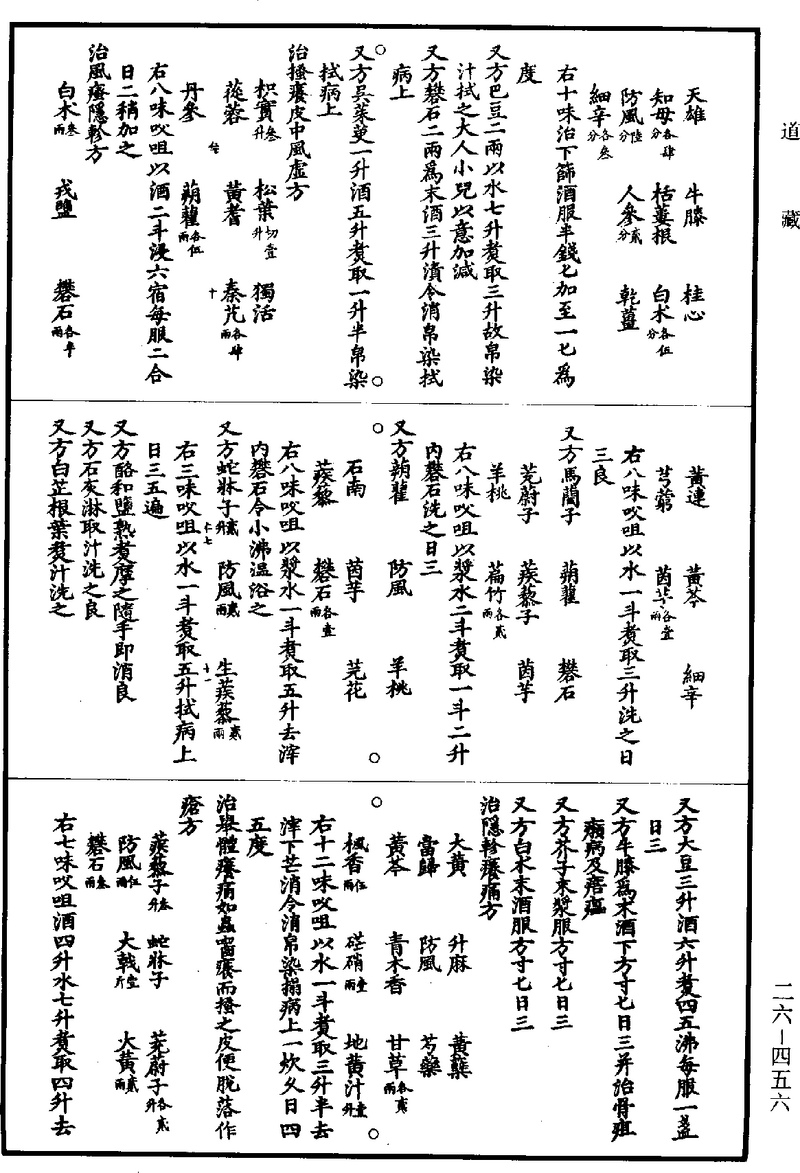 道藏
天雄　牛膝　桂心
知母各肆分　栝蔞根　白朮各伍分
防風陸分　人參貳分　乾薑
細辛各叁分
右十味治下篩酒服半錢匕加至一匕為
度
又方巴豆二兩以水七升煑取三升故帛染
汁拭之大人小兒以意加減
又方礬石二兩為末酒三升漬令消帛染拭
病上
又方吳茱萸一升酒五升煑取一升半帛染
拭病上
治搔癢皮中風虛方
枳實叁升　松葉切壹升　獨活
蓯蓉　黃耆　秦艽各肆兩
丹參　蒴藋各伍兩
右八味㕮咀以酒二斗浸六宿每服二合
日二稍加之
治風瘙隱軫方
白朮叁兩　戎鹽　礬石各半兩
黃連　黃芩　細辛
芎藭　茵芋各壹兩
右八味㕮咀以水一斗煑取三升洗之日
三良
又方馬藺子　蒴藋　礬石
茺蔚子　蒺藜子　茵芋
羊桃　萹竹各貳兩
右八味㕮咀以漿水二斗煑取一斗二升
內礬石洗之日三
又方蒴藋　防風　羊桃
石南　茵芋　芫花
蒺藜　礬石各壹兩
右八味㕮咀以漿水一斗煑取五升去滓
內礬石令小沸温浴之
又方蛇牀子貳升　防風貳兩　生蒺藜貳兩
右三味㕮咀以水一斗煑取五升拭病上
日三五遍
又方酪和鹽熟煑摩之隨手即消良
又方石灰淋取汁洗之良
又方白芷根葉煑汁洗之
又方大豆三升酒六升煑四五沸每服一盞
日三
又方牛膝為末酒下方寸匕日三并治骨疽
癩病及㾦癗
又方芥子末漿服方寸匕日三
又方白朮末酒服方寸匕日三
治隱軫癢痛方
大黃　升麻　黃蘗
當歸　防風　芍藥
黃芩　青木香　甘草各貳兩
楓香伍兩　硭硝壹兩　地黃汁壹升
右十二味㕮咀以水一斗煑取三升半去
滓下芒消令消帛染搨病上一炊久日四
五度
治舉體癢痛如蟲齧癢而搔之皮便脫落作
瘡方
蒺藜子叁升　蛇牀子　茺蔚子各貳升
防風伍兩　大戟壹斤　大黃貳兩
礬石叁兩
右七味㕮咀酒四升水七升煑取四升去
二六—四五六